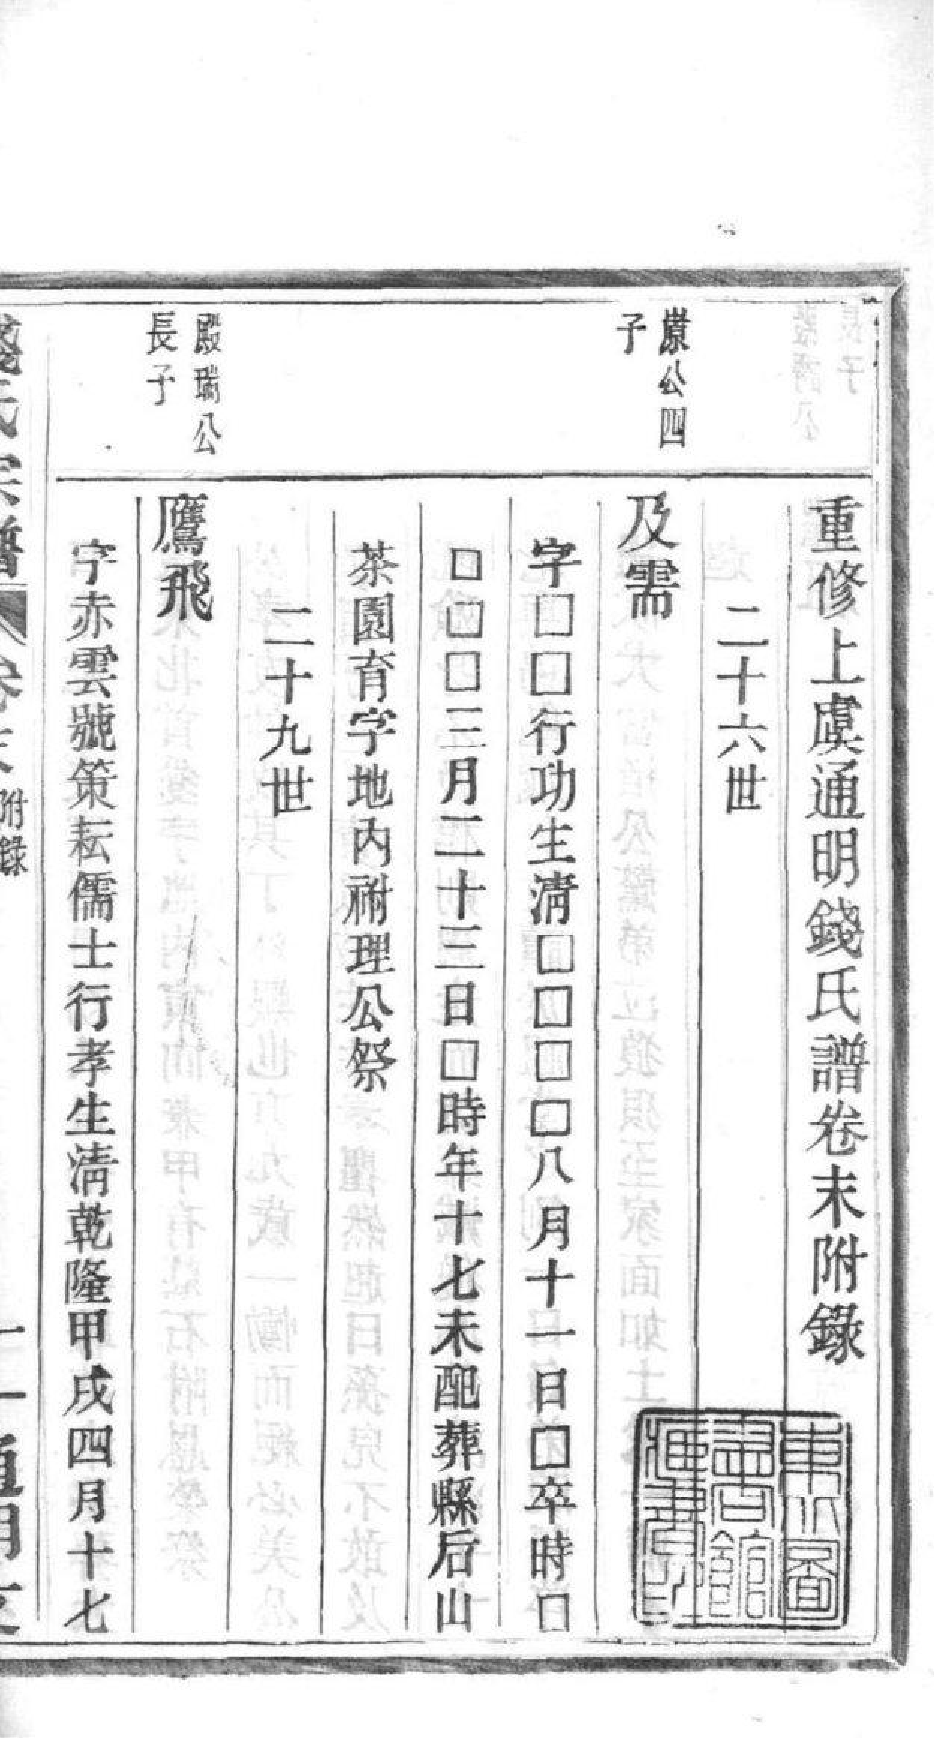 重修上虞通明錢氏譜卷末附錄
二十六世
崇公四
子
及需
字□□行功生清□□□□八月十一日□卒時□
□□□三月二十三日□時年十七未配葬縣后山
茶園育字地內祔理公祭
二十九世
殿瑞公
長子
鷹飛
字赤雲號策耘儒士行孝生清乾隆甲戌四月十七
錢氏宗譜
卷末
附錄